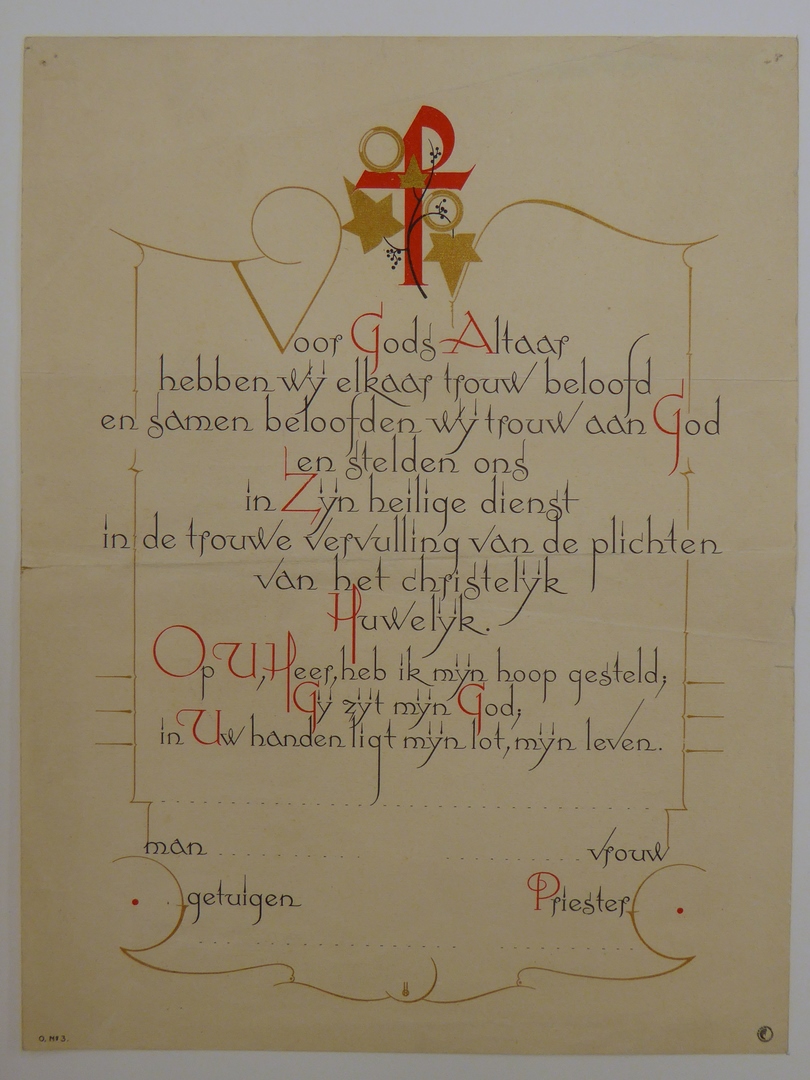 Voor Gods Altaar
hebben wij elkaar trouw beloofd
en samen beloofden wij trouw aan God
en stelden ons
in Zijn heilige dienst
in de trouwe vervulling van de plichten
van het christelijk
Huwelijk.
Op U, Heer, heb ik mijn hoop gesteld;
Gij zijt mijn God;
in Uw handen ligt mijn lot, mijn leven.
man vrouw
getuigen Priester
O. No 3.